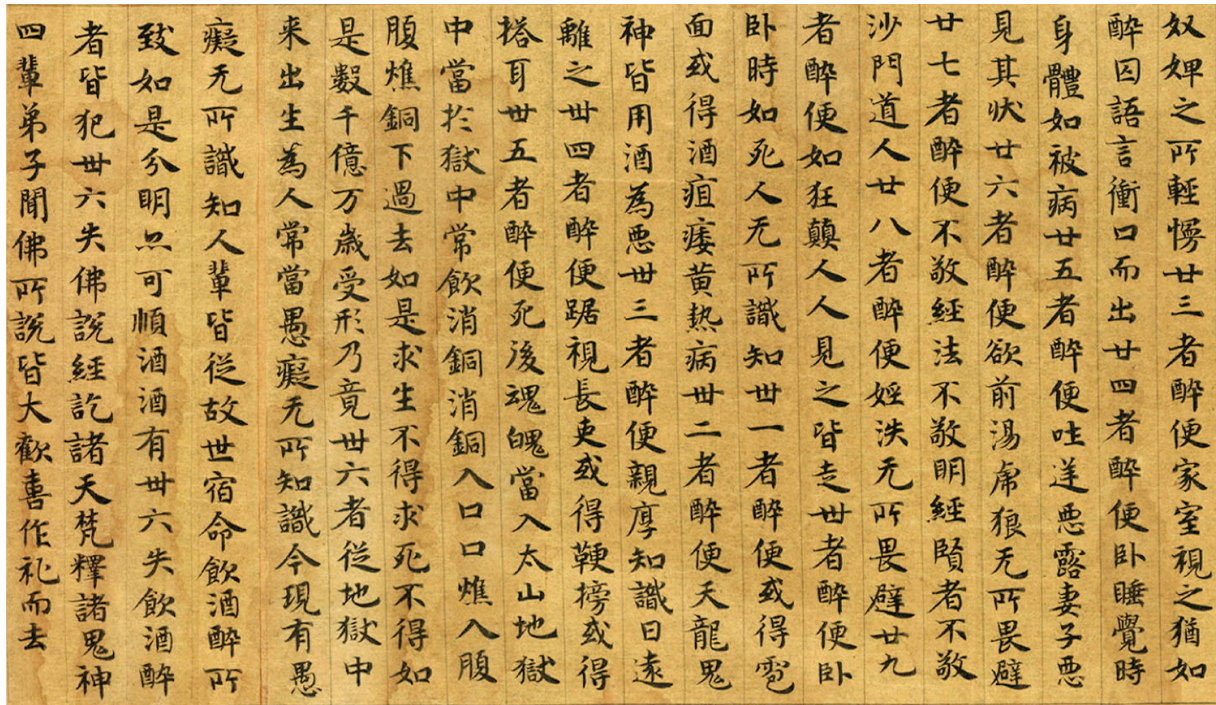 奴婢之所輕慢廿三者醉便家室視之猶如
醉囚語言衝口而出廿四者醉便卧睡覺時
身體如被病廿五者醉便吐逆惡露妻子惡
見其狀廿六者醉便欲前湯席狼无所畏避
廿七者醉便不敬經法不敬明經賢者不敬
沙門道人廿八者醉便婬泆无所畏避廿九
者醉便如狂顛人人見之皆走卅者醉便卧
卧時如死人无所識知卅一者醉便或得皰
面或得酒疽痿黄热病卅二者醉便天龍鬼
神皆用酒為惡卅三者醉便親厚知識日遠
離之卅四者醉便踞視長吏或得鞭搒或得
搭耳卅五者醉便死後魂魄當入太山地獄
中當於獄中常飲消銅消銅入口口燋入腹
腹燋銅下過去如是求生不得求死不得如
是數千億万歲受形乃竟卅六者從地獄中
来出生為人常當愚癡无所知識今現有愚
癡无所識知人輩皆從故世宿命飲酒醉所
致如是分明亦可順酒酒有卅六失飲酒醉
者皆犯卅六失佛說經訖諸天梵釋諸鬼神
四輩弟子聞佛所說皆大歡喜作礼而去